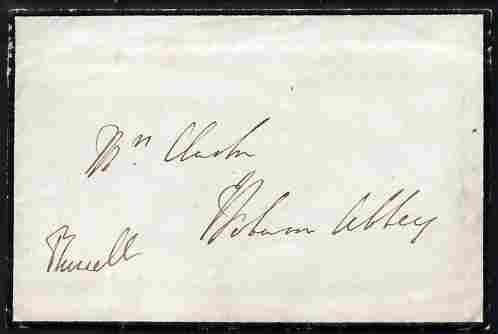 Mrs Clarke
Woburn Abbey
Russell